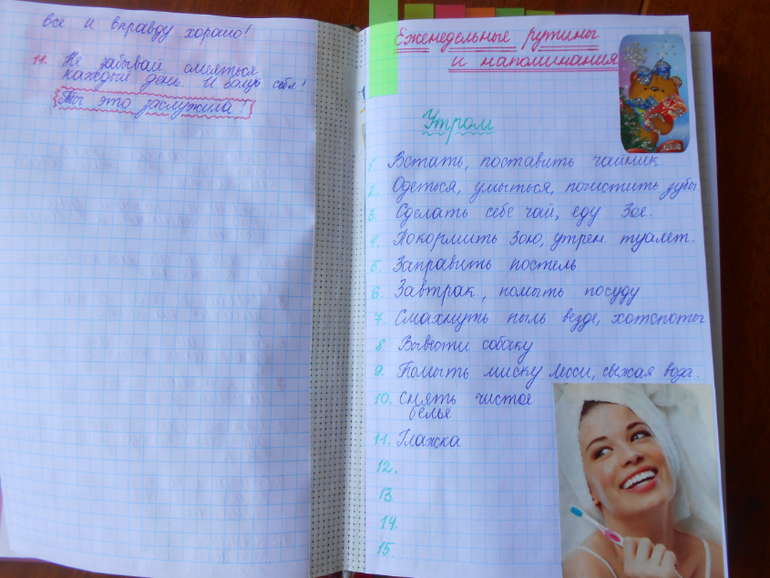 все и вправду хорошо!
11. Не забывай смеяться
каждый день и себя!
Ты это заслужила!
Еженедельные рутины
и напоминания
Утром
1. Встать, поставить чайник.
2. Одеться, умыться, почистить зубы
3. Сделать себе чай, еду Зое.
4. Покормить Зою, утрен. туалет.
5. Заправить постель
6. Завтрак, помыть посуду
7. Смахнуть пыль везде, хотспоты
8. Вывести собаку
9. Помыть миску Лесси, свежая вода.
10. снять чистое
белье
11. Глажка
12.
13
14.
15.